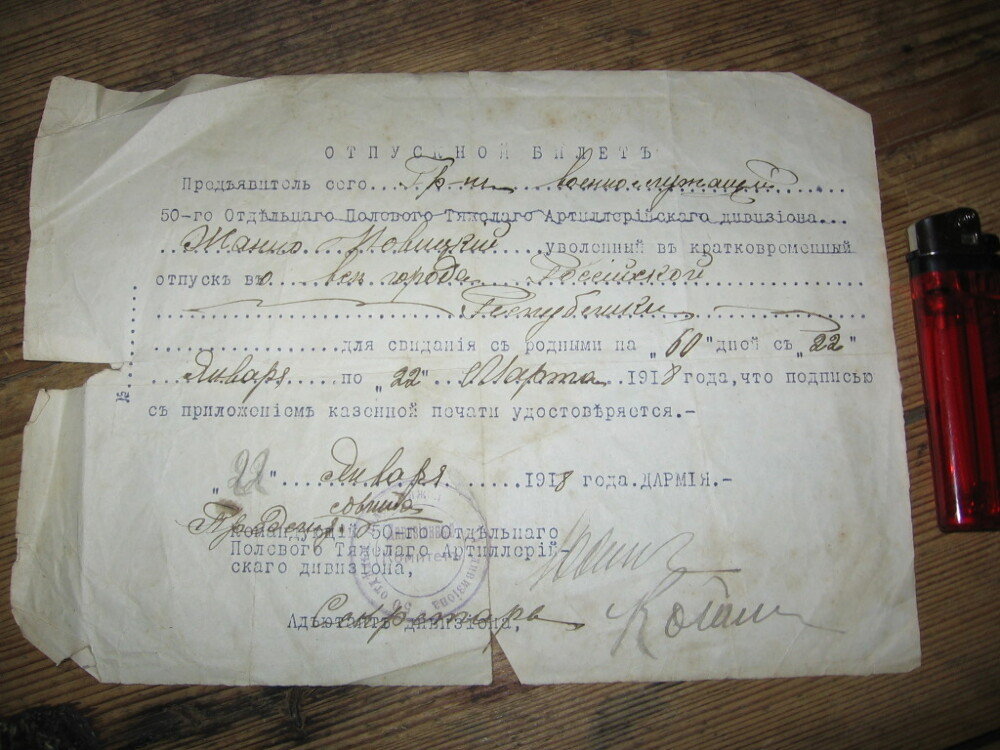 ОТПУСКНОЙ БИЛЕТЪ
Предъявитель сего...Гр-нъ военнослужащий
50-го Отдѣльнаго Полового Тяжолаго Артиллерійскаго дивизіона...
Новицкий....уволенный въ кратковременный
отпускъ во всѣ города Россійской
Республики
для свиданія съ родными на "60" дней съ "22"
Января.....по "22"..Марта..1918 года, что подписью
съ приложеніемъ казенной печати удостовѣряется.-
№
"22"...Января.....1918 года. ДАРМІЯ.-
Командующій 50-го Отдѣльнаго
Полового Тяжолаго Артиллерій-
скаго дивизіона,
Секретарь
Адъютантъ дивизіона,